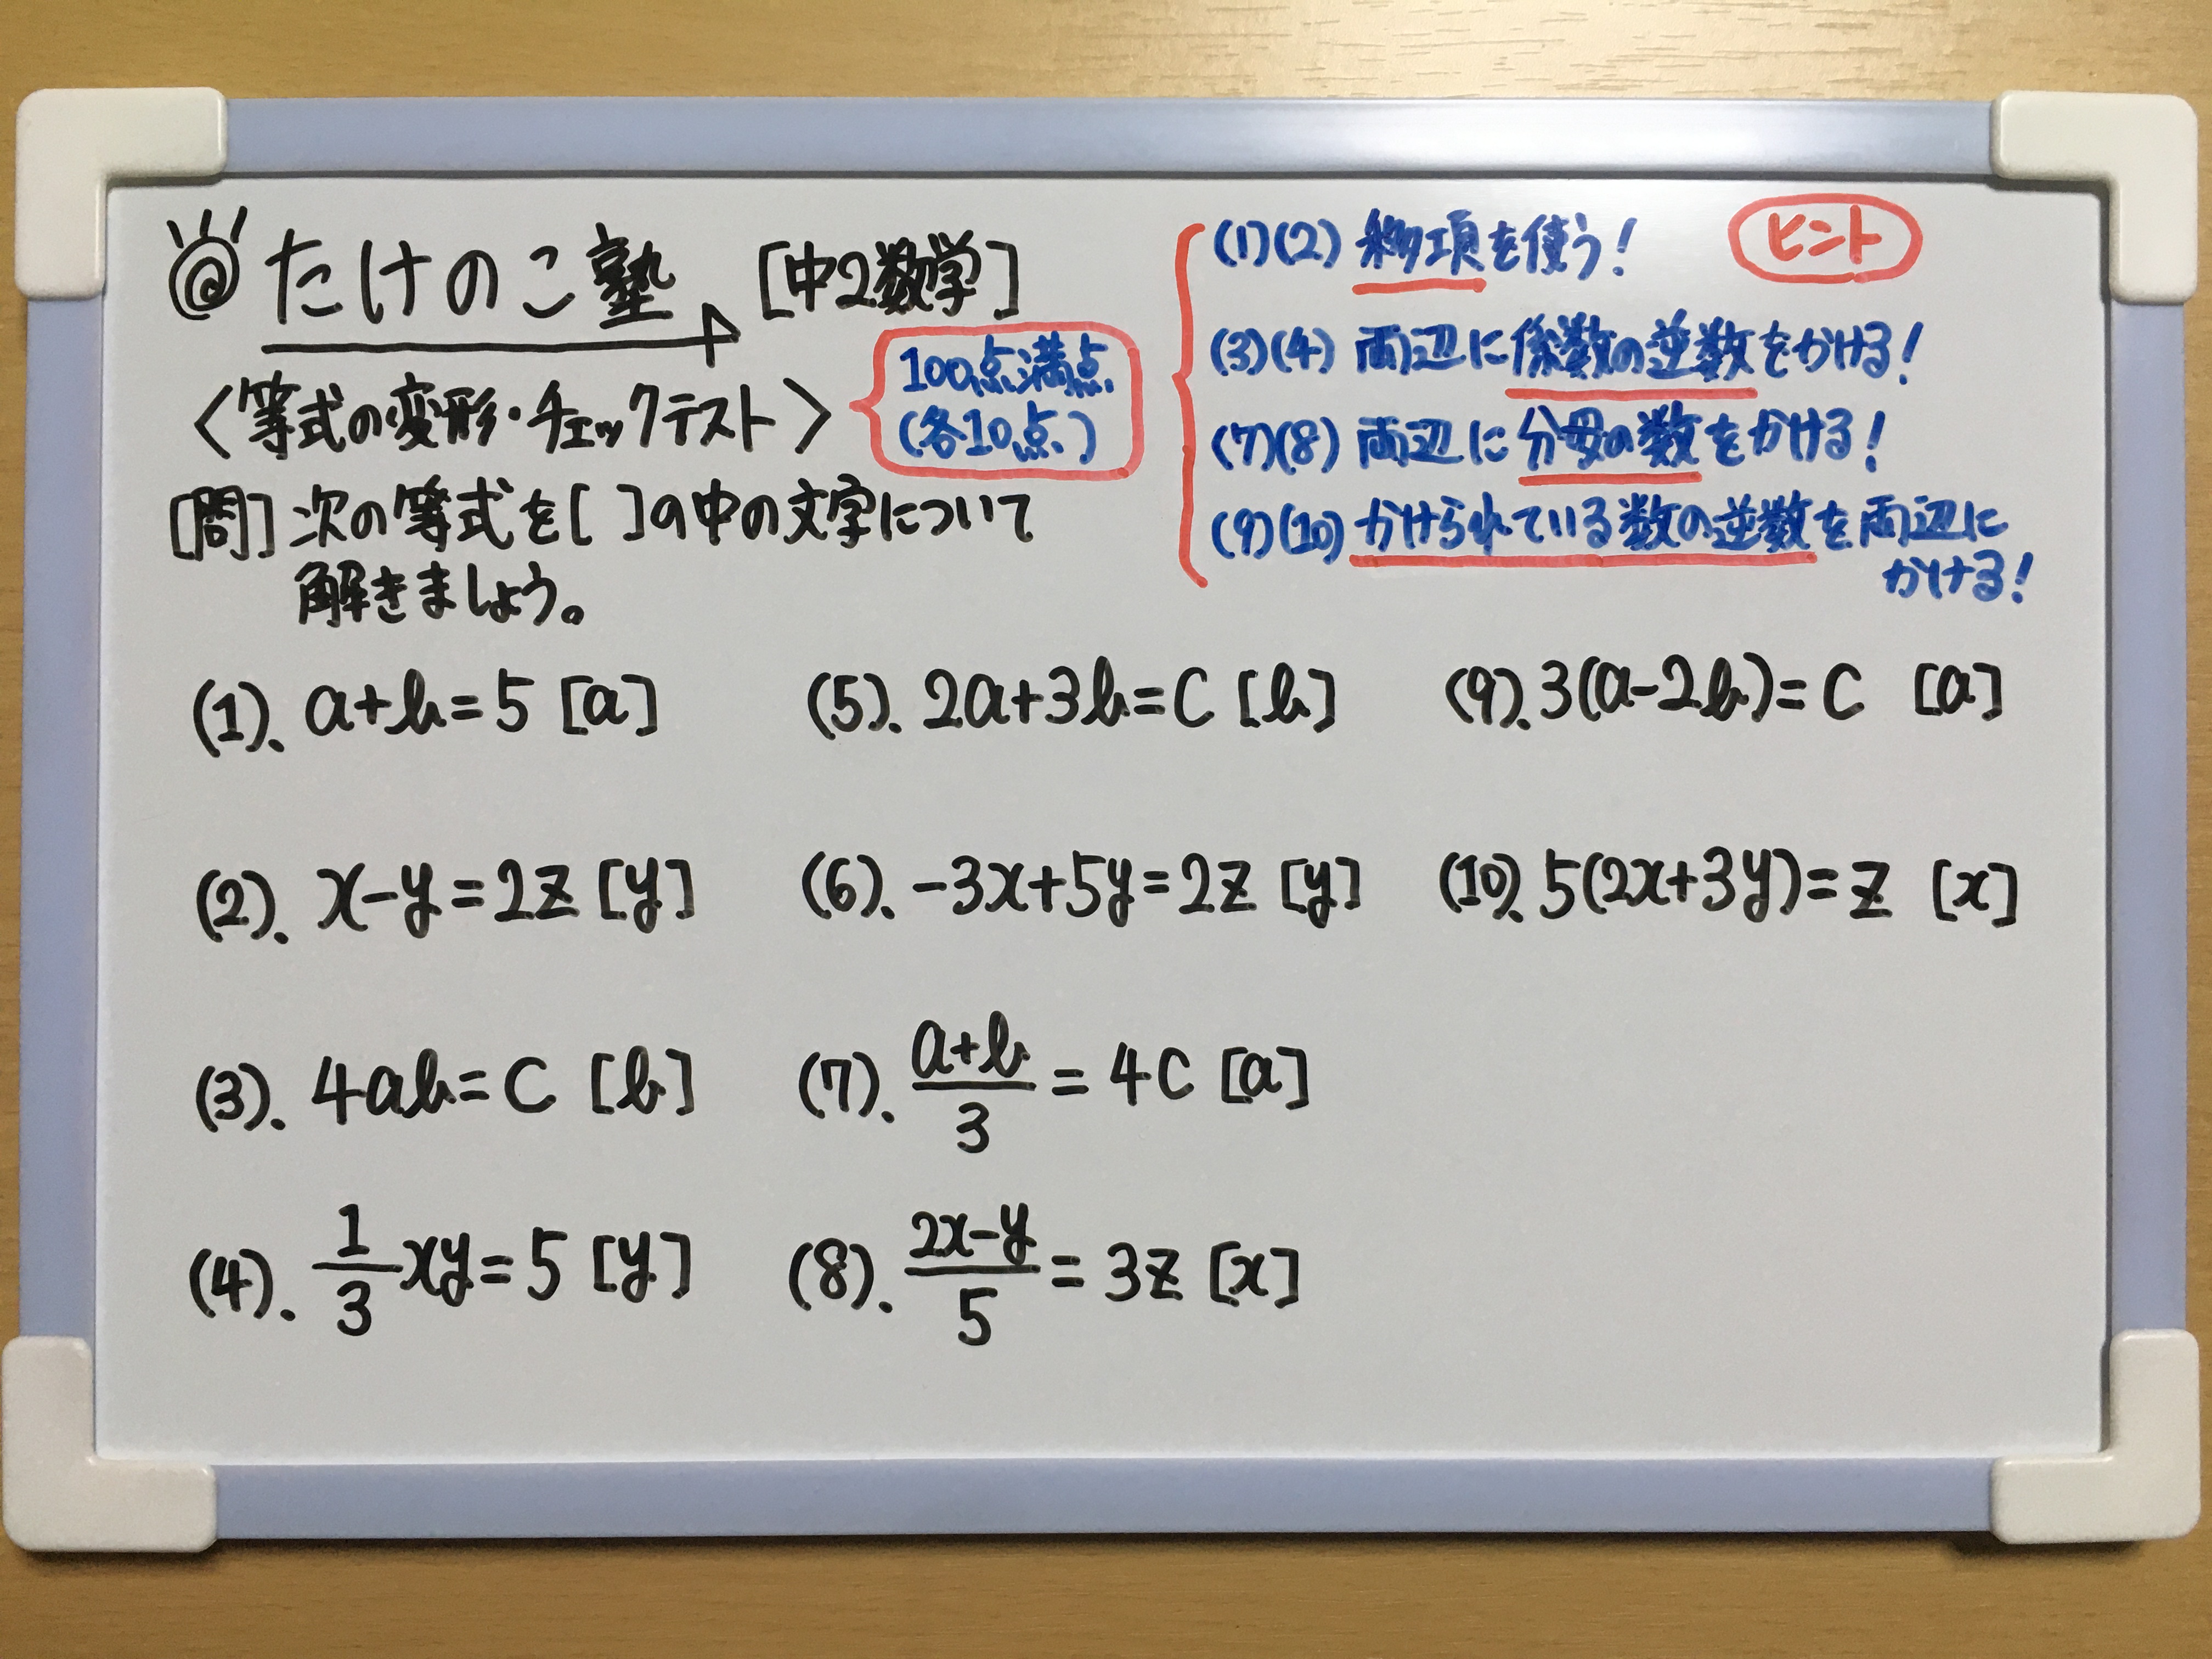 たけのこ塾 [中2数学]
<等式の変形・チェックテスト>
100点満点
(各10点)
[問] 次の等式を[ ]の中の文字について
解きましょう。
ヒント
(1)(2) 移項を使う!
(3)(4) 両辺に係数の逆数をかける!
(7)(8) 両辺に分母の数をかける!
(9)(10) かけられている数の逆数を両辺に
かける!
(1). a+b=5 [a]
(2). x-y=2z [y]
(3). 4ab=c [b]
(4). 1/3 xy=5 [y]
(5). 2a+3b=c [b]
(6). -3x+5y=2z [y]
(7). (a+b)/3 = 4c [a]
(8). (2x-y)/5 = 3z [x]
(9). 3(a-2b)=c [a]
(10). 5(2x+3y)=z [x]